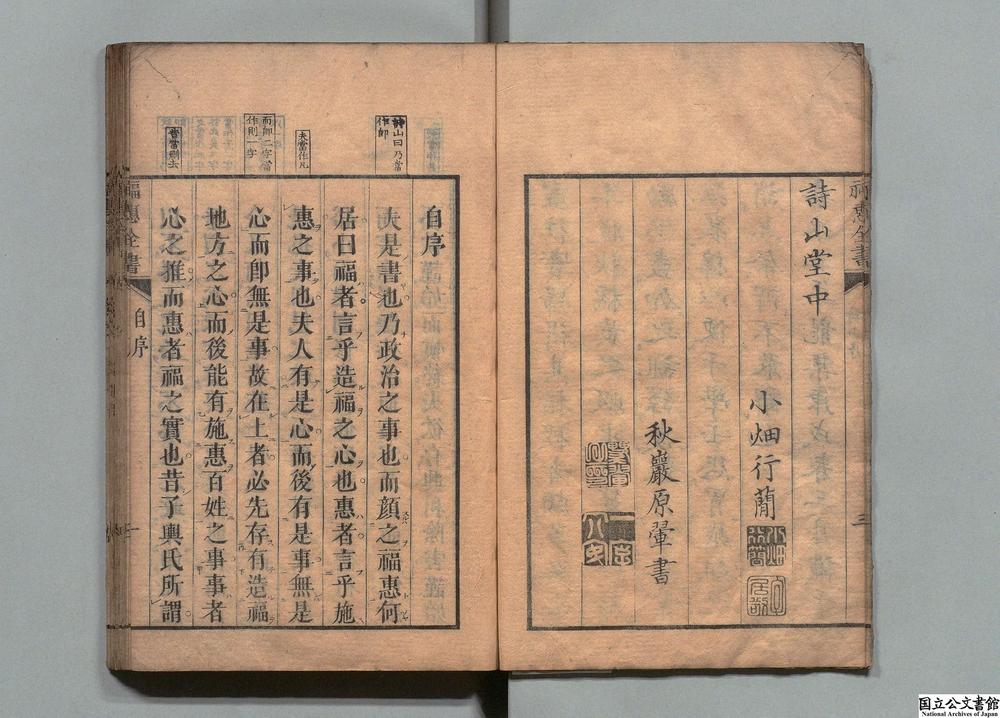 詩山堂中
小畑行蕑
秋巖原翬書
福惠全書
三
詩山曰乃當
作即
夫當作凡
而卽二字當
作則一字
自序
夫是書也乃政治之事也而顔之福惠何
居曰福者言乎造福之心也惠者言乎施
惠之事也夫人有是心而後有是事無是
心而卽無是事故在上者必先存有造福
地方之心而後能有施惠百姓之事事者
心之推而惠者福之實也昔子輿氏所謂
福惠全書
自序
国立公文書館
National Archives of Japan